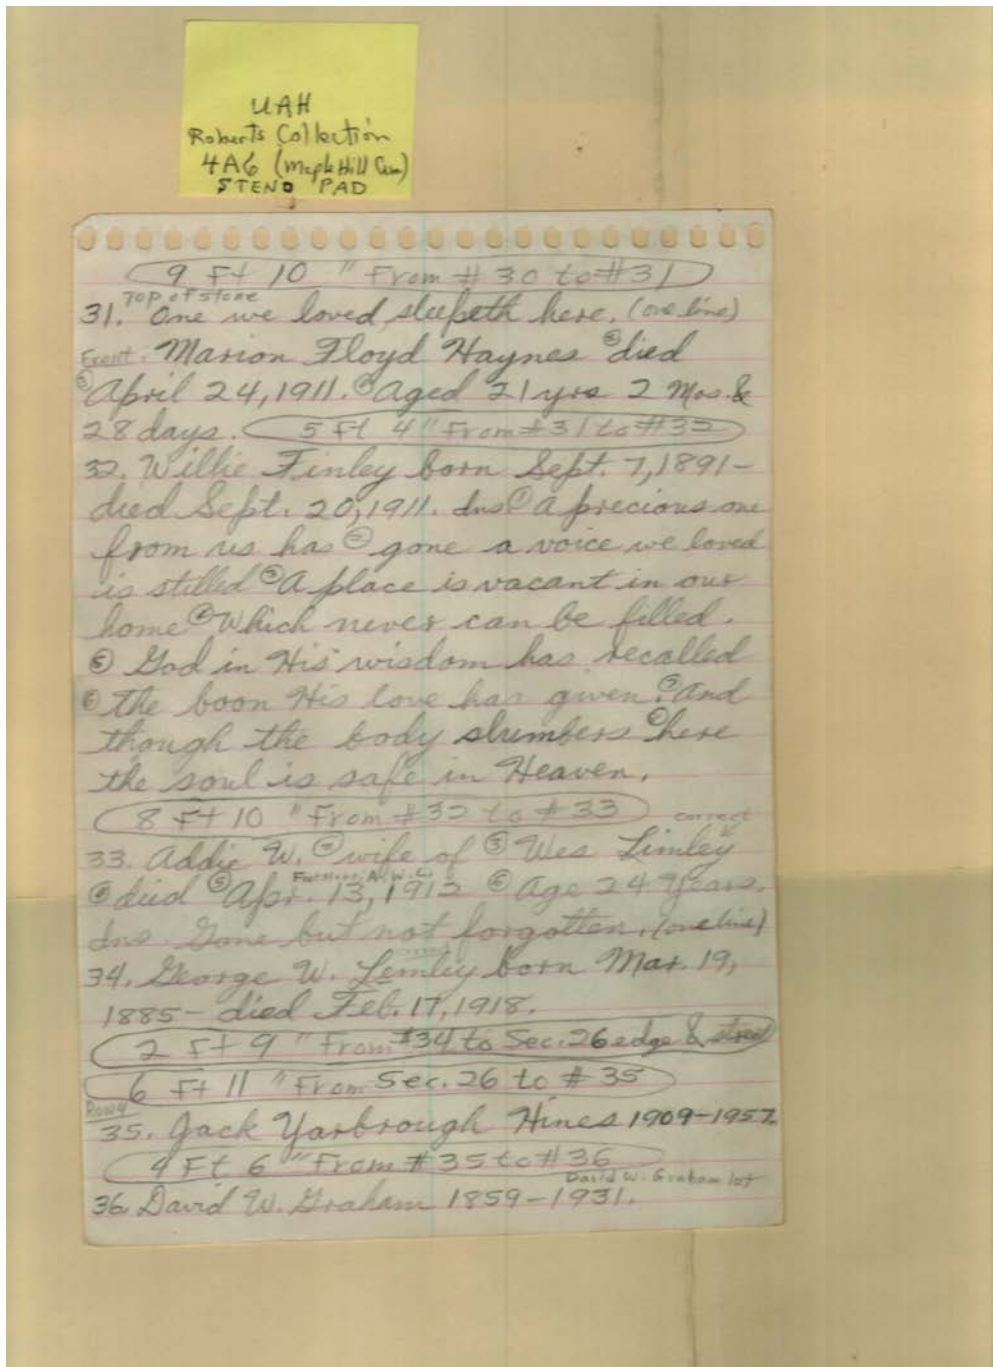 UAH
Roberts Collection
4A6 (Maple Hill Cem)
STENO PAD
9 Ft 10 " From # 30 to #31
Top of stone
31. One we loved sleepeth here. (one line)
Front: Marion Floyd Haynes ② died
③ April 24, 1911. ④ Aged 21 yrs 2 Mos. &
28 days. 5 Ft 4 " From #31 to #32
32. Willie Finley born Sept. 7, 1891-
died Sept. 20, 1911. dns ① A precious one
from us has ② gone a voice we loved
is stilled ③ A place is vacant in our
home ④ Which never can be filled.
⑤ God in His wisdom has recalled
⑥ the boon His love has given. ⑦ And
though the body slumbers ⑧ here
the soul is safe in Heaven.
8 Ft 10 " From #32 to #33
correct
33. Addie W. ② wife of ③ Wes Limley
Footstone: A.W.L.
④ died ⑤ Apr. 13, 1912 ⑥ Age 24 Years.
dns Gone but not forgotten. (one line)
34. George W. Lemley born Mar. 19,
1885- died Feb. 17, 1918.
2 Ft 9 " From #34 to Sec. 26 edge & street
6 Ft 11 " From Sec. 26 to #35
Row 4
35. Jack Yarbrough Hines 1909-1957.
9 Ft 6 " From #35 to #36
David W. Graham lot
36. David W. Graham 1859-1931.